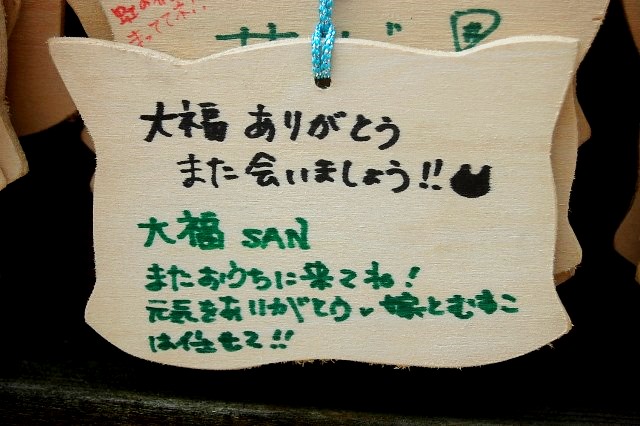 まってて
サビ
大福 ありがとう
また会いましょう!!
大福 SAN
またおうちに来てね!
元気をありがとう 嫁とむすこ
は任せて!!